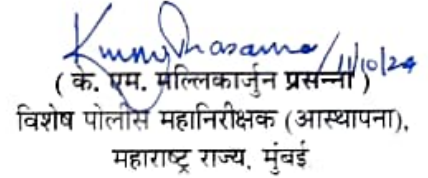 11/10/24
( के. एम. मल्लिकार्जुन प्रसन्ना )
विशेष पोलीस महानिरीक्षक (आस्थापना),
महाराष्ट्र राज्य, मुंबई